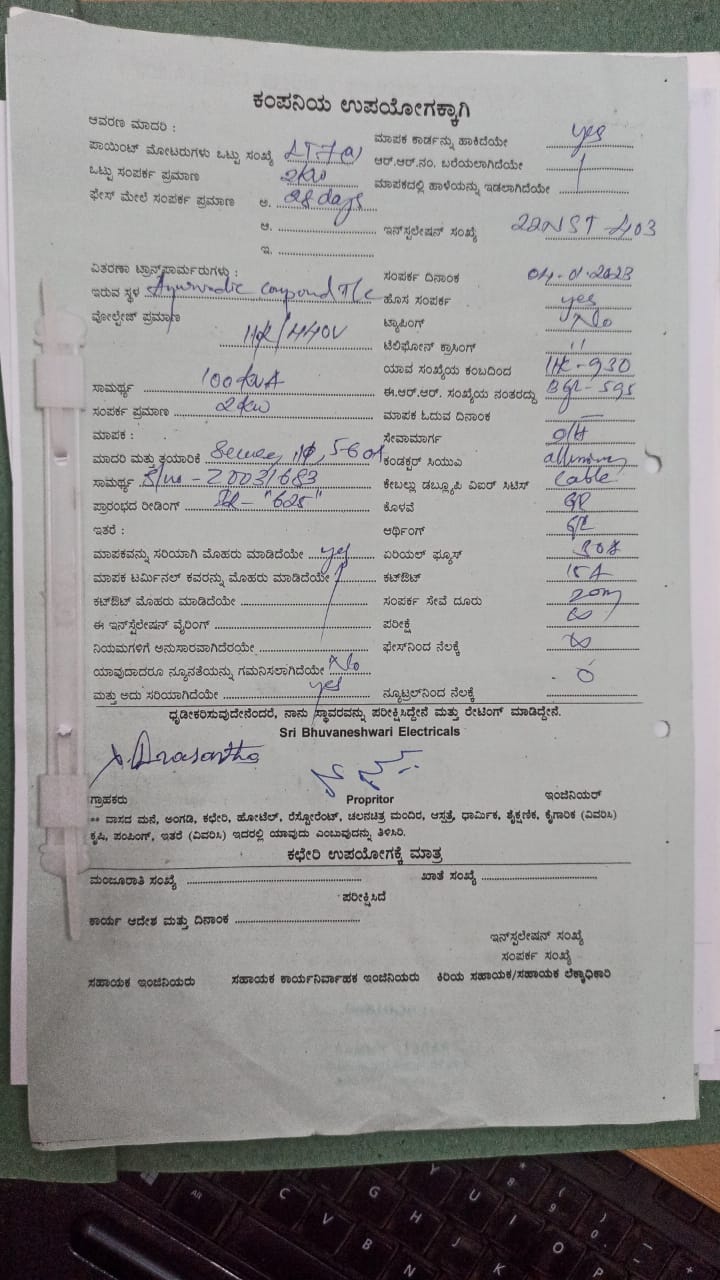 ಕಂಪನಿಯ ಉಪಯೋಗಕ್ಕಾಗಿ
ಆವರಣ ಮಾದರಿ :
ಮಾಪಕ ಕಾರ್ಡನ್ನು ಹಾಕಿದೆಯೇ yes
ಪಾಯಿಂಟ್ ಮೋಟರುಗಳು ಒಟ್ಟು ಸಂಖ್ಯೆ LT7(a)
ಆರ್.ಆರ್.ನಂ. ಬರೆಯಲಾಗಿದೆಯೇ
ಒಟ್ಟು ಸಂಪರ್ಕ ಪ್ರಮಾಣ 2kw
ಮಾಪಕದಲ್ಲಿ ಹಾಳೆಯನ್ನು ಇಡಲಾಗಿದೆಯೇ
ಫೇಸ್ ಮೇಲೆ ಸಂಪರ್ಕ ಪ್ರಮಾಣ ಅ. 28 days
ಆ.
ಇನ್‌ಸ್ಟಲೇಷನ್ ಸಂಖ್ಯೆ 22NST-403
ಇ.
ವಿತರಣಾ ಟ್ರಾನ್ಸ್‌ಫಾರ್ಮರುಗಳು :
ಸಂಪರ್ಕ ದಿನಾಂಕ 04.01.2023
ಇರುವ ಸ್ಥಳ Ayurvadic compond T/c
ಹೊಸ ಸಂಪರ್ಕ yes
ವೋಲ್ಟೇಜ್ ಪ್ರಮಾಣ
ಟ್ಯಾಪಿಂಗ್ No
ಟೆಲಿಫೋನ್ ಕ್ರಾಸಿಂಗ್ "
ಯಾವ ಸಂಖ್ಯೆಯ ಕಂಬದಿಂದ
ಸಾಮರ್ಥ್ಯ 100KVA
ಈ.ಆರ್.ಆರ್. ಸಂಖ್ಯೆಯ ನಂತರದ್ದು
ಸಂಪರ್ಕ ಪ್ರಮಾಣ 2kw
ಮಾಪಕ ಓದುವ ದಿನಾಂಕ —
ಮಾಪಕ :
ಸೇವಾಮಾರ್ಗ O/H
ಮಾದರಿ ಮತ್ತು ತಯಾರಿಕೆ
ಕಂಡಕ್ಟರ್ ಸಿಯುವಿ
ಸಾಮರ್ಥ್ಯ S/no - 20031683
ಕೇಬಲ್ಲು ಡಬ್ಲ್ಯೂಪಿ ವಿಐರ್ ಸಿಟಿಸ್ Cable
ಪ್ರಾರಂಭದ ರೀಡಿಂಗ್ IR - "625"
ಕೊಳವೆ
ಇತರೆ :
ಆರ್ಥಿಂಗ್
ಮಾಪಕವನ್ನು ಸರಿಯಾಗಿ ಮೊಹರು ಮಾಡಿದೆಯೇ yes
ಏರಿಯಲ್ ಫ್ಯೂಸ್ 30A
ಮಾಪಕ ಟರ್ಮಿನಲ್ ಕವರನ್ನು ಮೊಹರು ಮಾಡಿದೆಯೇ
ಕಟ್‌ಔಟ್ 15A
ಕಟ್‌ಔಟ್ ಮೊಹರು ಮಾಡಿದೆಯೇ
ಸಂಪರ್ಕ ಸೇವೆ ದೂರು 20m
ಈ ಇನ್‌ಸ್ಟೆಲೇಷನ್ ವೈರಿಂಗ್
ಪರೀಕ್ಷೆ ∞
ನಿಯಮಗಳಿಗೆ ಅನುಸಾರವಾಗಿದೆರಯೇ
ಫೇಸ್‌ನಿಂದ ನೆಲಕ್ಕೆ ∞
ಯಾವುದಾದರೂ ನ್ಯೂನತೆಯನ್ನು ಗಮನಿಸಲಾಗಿದೆಯೇ No
ಮತ್ತು ಅದು ಸರಿಯಾಗಿದೆಯೇ yes
ನ್ಯೂಟ್ರಲ್‌ನಿಂದ ನೆಲಕ್ಕೆ 0
ಧೃಡೀಕರಿಸುವುದೇನೆಂದರೆ, ನಾನು ಸ್ಥಾವರವನ್ನು ಪರೀಕ್ಷಿಸಿದ್ದೇನೆ ಮತ್ತು ರೇಟಿಂಗ್ ಮಾಡಿದ್ದೇನೆ.
Sri Bhuvaneshwari Electricals
ಗ್ರಾಹಕರು Propritor ಇಂಜಿನಿಯರ್
** ವಾಸದ ಮನೆ, ಅಂಗಡಿ, ಕಛೇರಿ, ಹೋಟೆಲ್, ರೆಸ್ಟೋರೆಂಟ್, ಚಲನಚಿತ್ರ ಮಂದಿರ, ಆಸ್ಪತ್ರೆ, ಧಾರ್ಮಿಕ, ಶೈಕ್ಷಣಿಕ, ಕೈಗಾರಿಕ (ವಿವರಿಸಿ)
ಕೃಷಿ, ಪಂಪಿಂಗ್, ಇತರೆ (ವಿವರಿಸಿ) ಇದರಲ್ಲಿ ಯಾವುದು ಎಂಬುವುದನ್ನು ತಿಳಿಸಿರಿ.
ಕಛೇರಿ ಉಪಯೋಗಕ್ಕೆ ಮಾತ್ರ
ಮಂಜೂರಾತಿ ಸಂಖ್ಯೆ ಖಾತೆ ಸಂಖ್ಯೆ
ಪರೀಕ್ಷಿಸಿದೆ
ಕಾರ್ಯ ಆದೇಶ ಮತ್ತು ದಿನಾಂಕ
ಇನ್‌ಸ್ಟಲೇಷನ್ ಸಂಖ್ಯೆ
ಸಂಪರ್ಕ ಸಂಖ್ಯೆ
ಸಹಾಯಕ ಇಂಜಿನಿಯರು ಸಹಾಯಕ ಕಾರ್ಯನಿರ್ವಾಹಕ ಇಂಜಿನಿಯರು ಕಿರಿಯ ಸಹಾಯಕ/ಸಹಾಯಕ ಲೆಕ್ಕಾಧಿಕಾರಿ